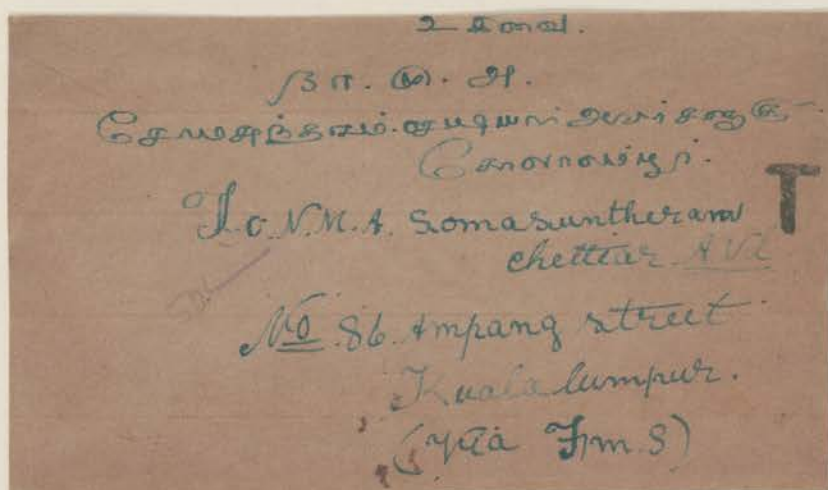 உ சிவை.
நா. மு. அ.
சோமசுந்தரம்.செட்டியார் அவர்களுக்கு
கோலாலம்பூர்.
T
To N.M.A. Somasuntheram
chettiar AVL
No 86. Ampang street
Kuala lumpur.
(Via F.m.S)